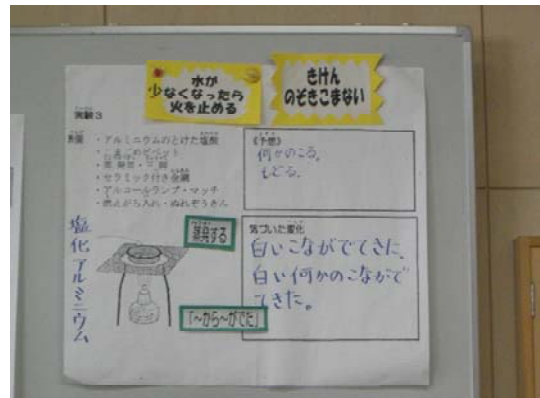 水が
少なくなったら
火を止める
きけん
のぞきこまない
実験3
・アルミニウムのとけた塩酸
・こまごめピペット
・セラミック付き金網
・アルコールランプ・マッチ
・燃えがら入れ・ぬれぞうきん
《予想》
何かのこる。
もどる。
塩化アルミニウム
蒸発する
「~から~がでた」
気づいた変化
白いこながでてきた。
白い何かのこながで
てきた。